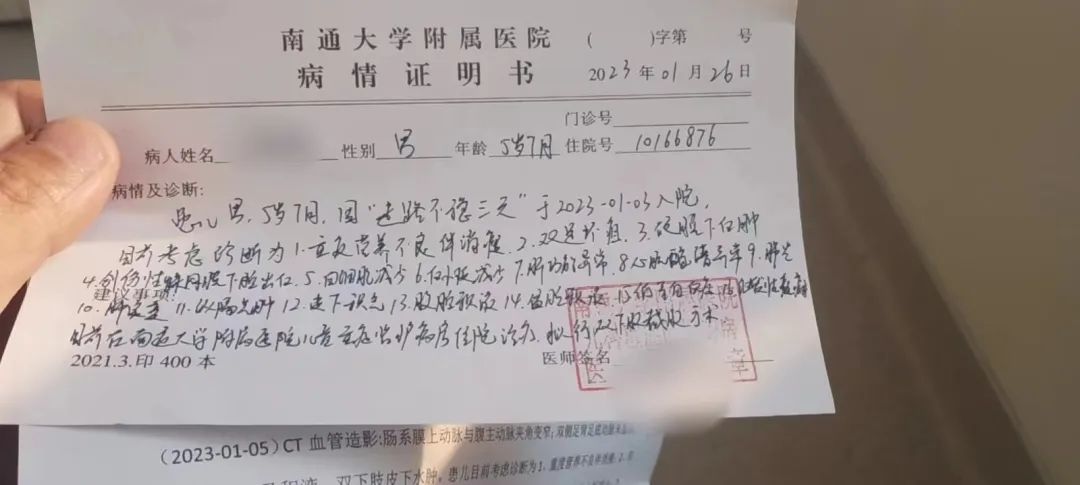 南通大学附属医院 ( )字第 号
病情证明书 2023年01月26日
门诊号
病人姓名 性别 男 年龄 5岁7月 住院号 10166876
病情及诊断:
患儿男,5岁7月,因“走路不稳三天”于2023-01-03入院,
目前考虑诊断为1.重度营养不良伴消瘦.2.双足坏疽.3.硬膜下血肿
4.创伤性蛛网膜下腔出血.5.白细胞减少 6.血小板减少 7.肝功能异常.8.心肌酶谱异常 9.肺炎
建议事项:
10. 11. 12.皮下积气 13.胸腔积液 14.盆腔积液 15.低蛋白血症 16.
目前在南通大学附属医院儿童重症监护病房住院诊疗,拟行双下肢截肢手术.
2021.3.印400本 医师签名
(2023-01-05)CT血管造影:肠系膜上动脉与腹主动脉夹角变窄;双侧足背足底动脉
双下肢皮下水肿。患儿目前考虑诊断为1.重度营养不良伴消瘦;2.